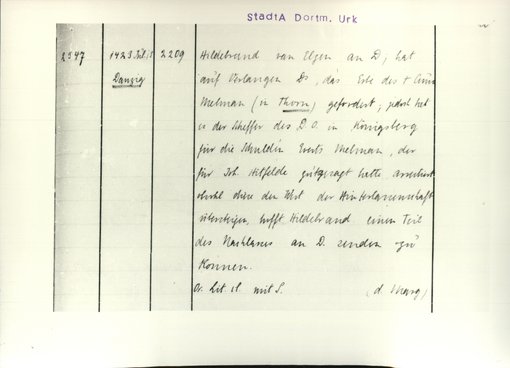 StadtA Dortm. Urk
2547 1423 Juli 5 2209 Hildebrand van Elzen an D; hat
Danzig auf Verlangen Ds, das Erbe des †
Melman (in Thorn) gefordert; jedoch hat
es der Scheffer des D.O. in Königsberg
für die Schulden Everts Melman, der
für Joh. Hilfelde gutgesagt hatte, arrestiert
obwohl diese den Wert der Hinterlassenschaft
übersteigen, hofft Hildebrand einen Teil
des Nachlasses an D. senden zu
können.
Or. Lit. cl. mit S. (d. Marg)